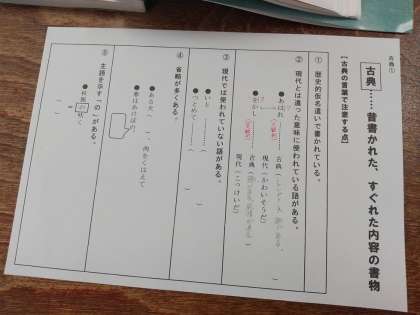 古典①
古典……昔書かれた、すぐれた内容の書物
【古典の言葉で注意する点】
① 歴史的仮名遣いで書かれている。
② 現代とは違った意味に使われている語がある。
●あはれ………古典（
現代（かわいそうだ）
●をかし………古典（
現代（こっけいだ）
③ 現代では使われていない語がある。
●いと…………（　　）
●つとめて……（　　）
④ 省略が多くある。
●ある犬（　　）、肉をくはえて
●春はあけぼの
⑤ 主語を示す「の」がある。